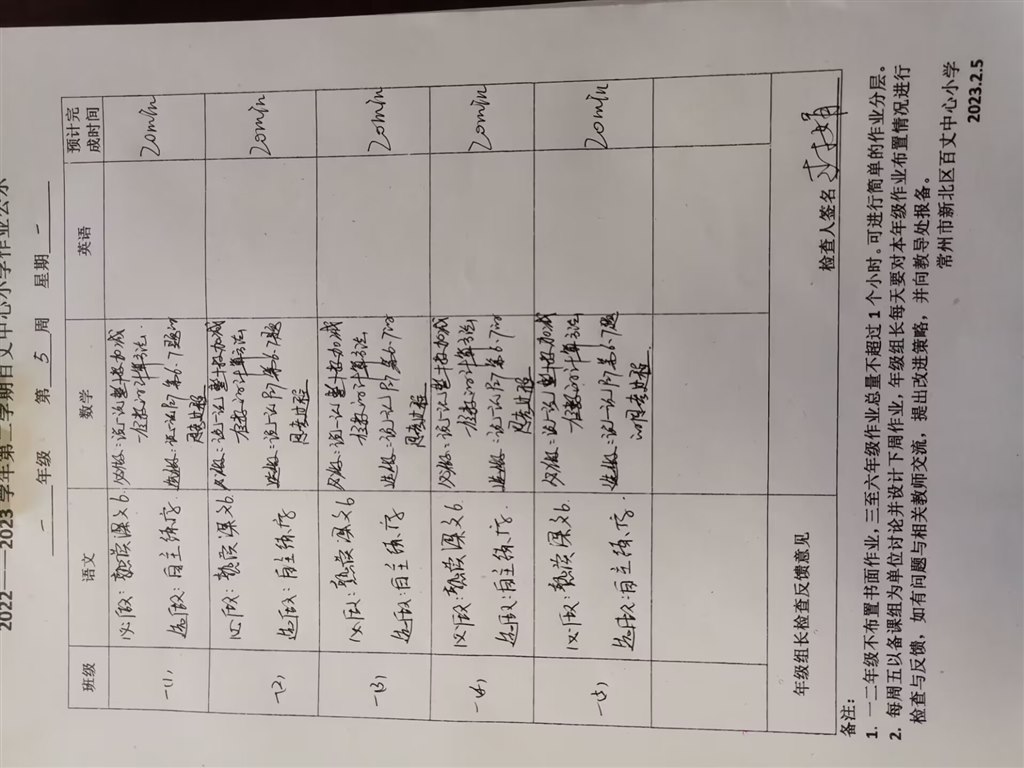 2022——2023 学年第二学期百丈中心小学作业公示
一 年级 第 5 周 星期 一
班级 语文 数学 英语 预计完成时间
一(1) 必做：熟读课文6. 必做：说一说整十数加减 20min
选做：自主练字. 选做：说一说P57第6、7题的
思考过程
一(2) 必做：熟读课文6. 必做：说一说整十数加减 20min
选做：自主练字. 选做：说一说P57第6、7题
思考过程
一(3) 必做：熟读课文6 必做：说一说整十数加减 20min
选做：自主练字 选做：说一说P57第6、7的
思考过程
一(4) 必做：熟读课文6. 必做：说一说整十数加减 20min
选做：自主练字. 选做：说一说P57第6、7的
思考过程
一(5) 必做：熟读课文6. 必做：说一说整十数加减 20min
选做：自主练字. 选做：说一说P57第6、7题
的思考过程
年级组长检查反馈意见 检查人签名
备注：
1. 一二年级不布置书面作业，三至六年级作业总量不超过 1 个小时。可进行简单的作业分层。
2. 每周五以备课组为单位讨论并设计下周作业，年级组长每天要对本年级作业布置情况进行
检查与反馈，如有问题与相关教师交流，提出改进策略，并向教导处报备。
常州市新北区百丈中心小学
2023.2.5